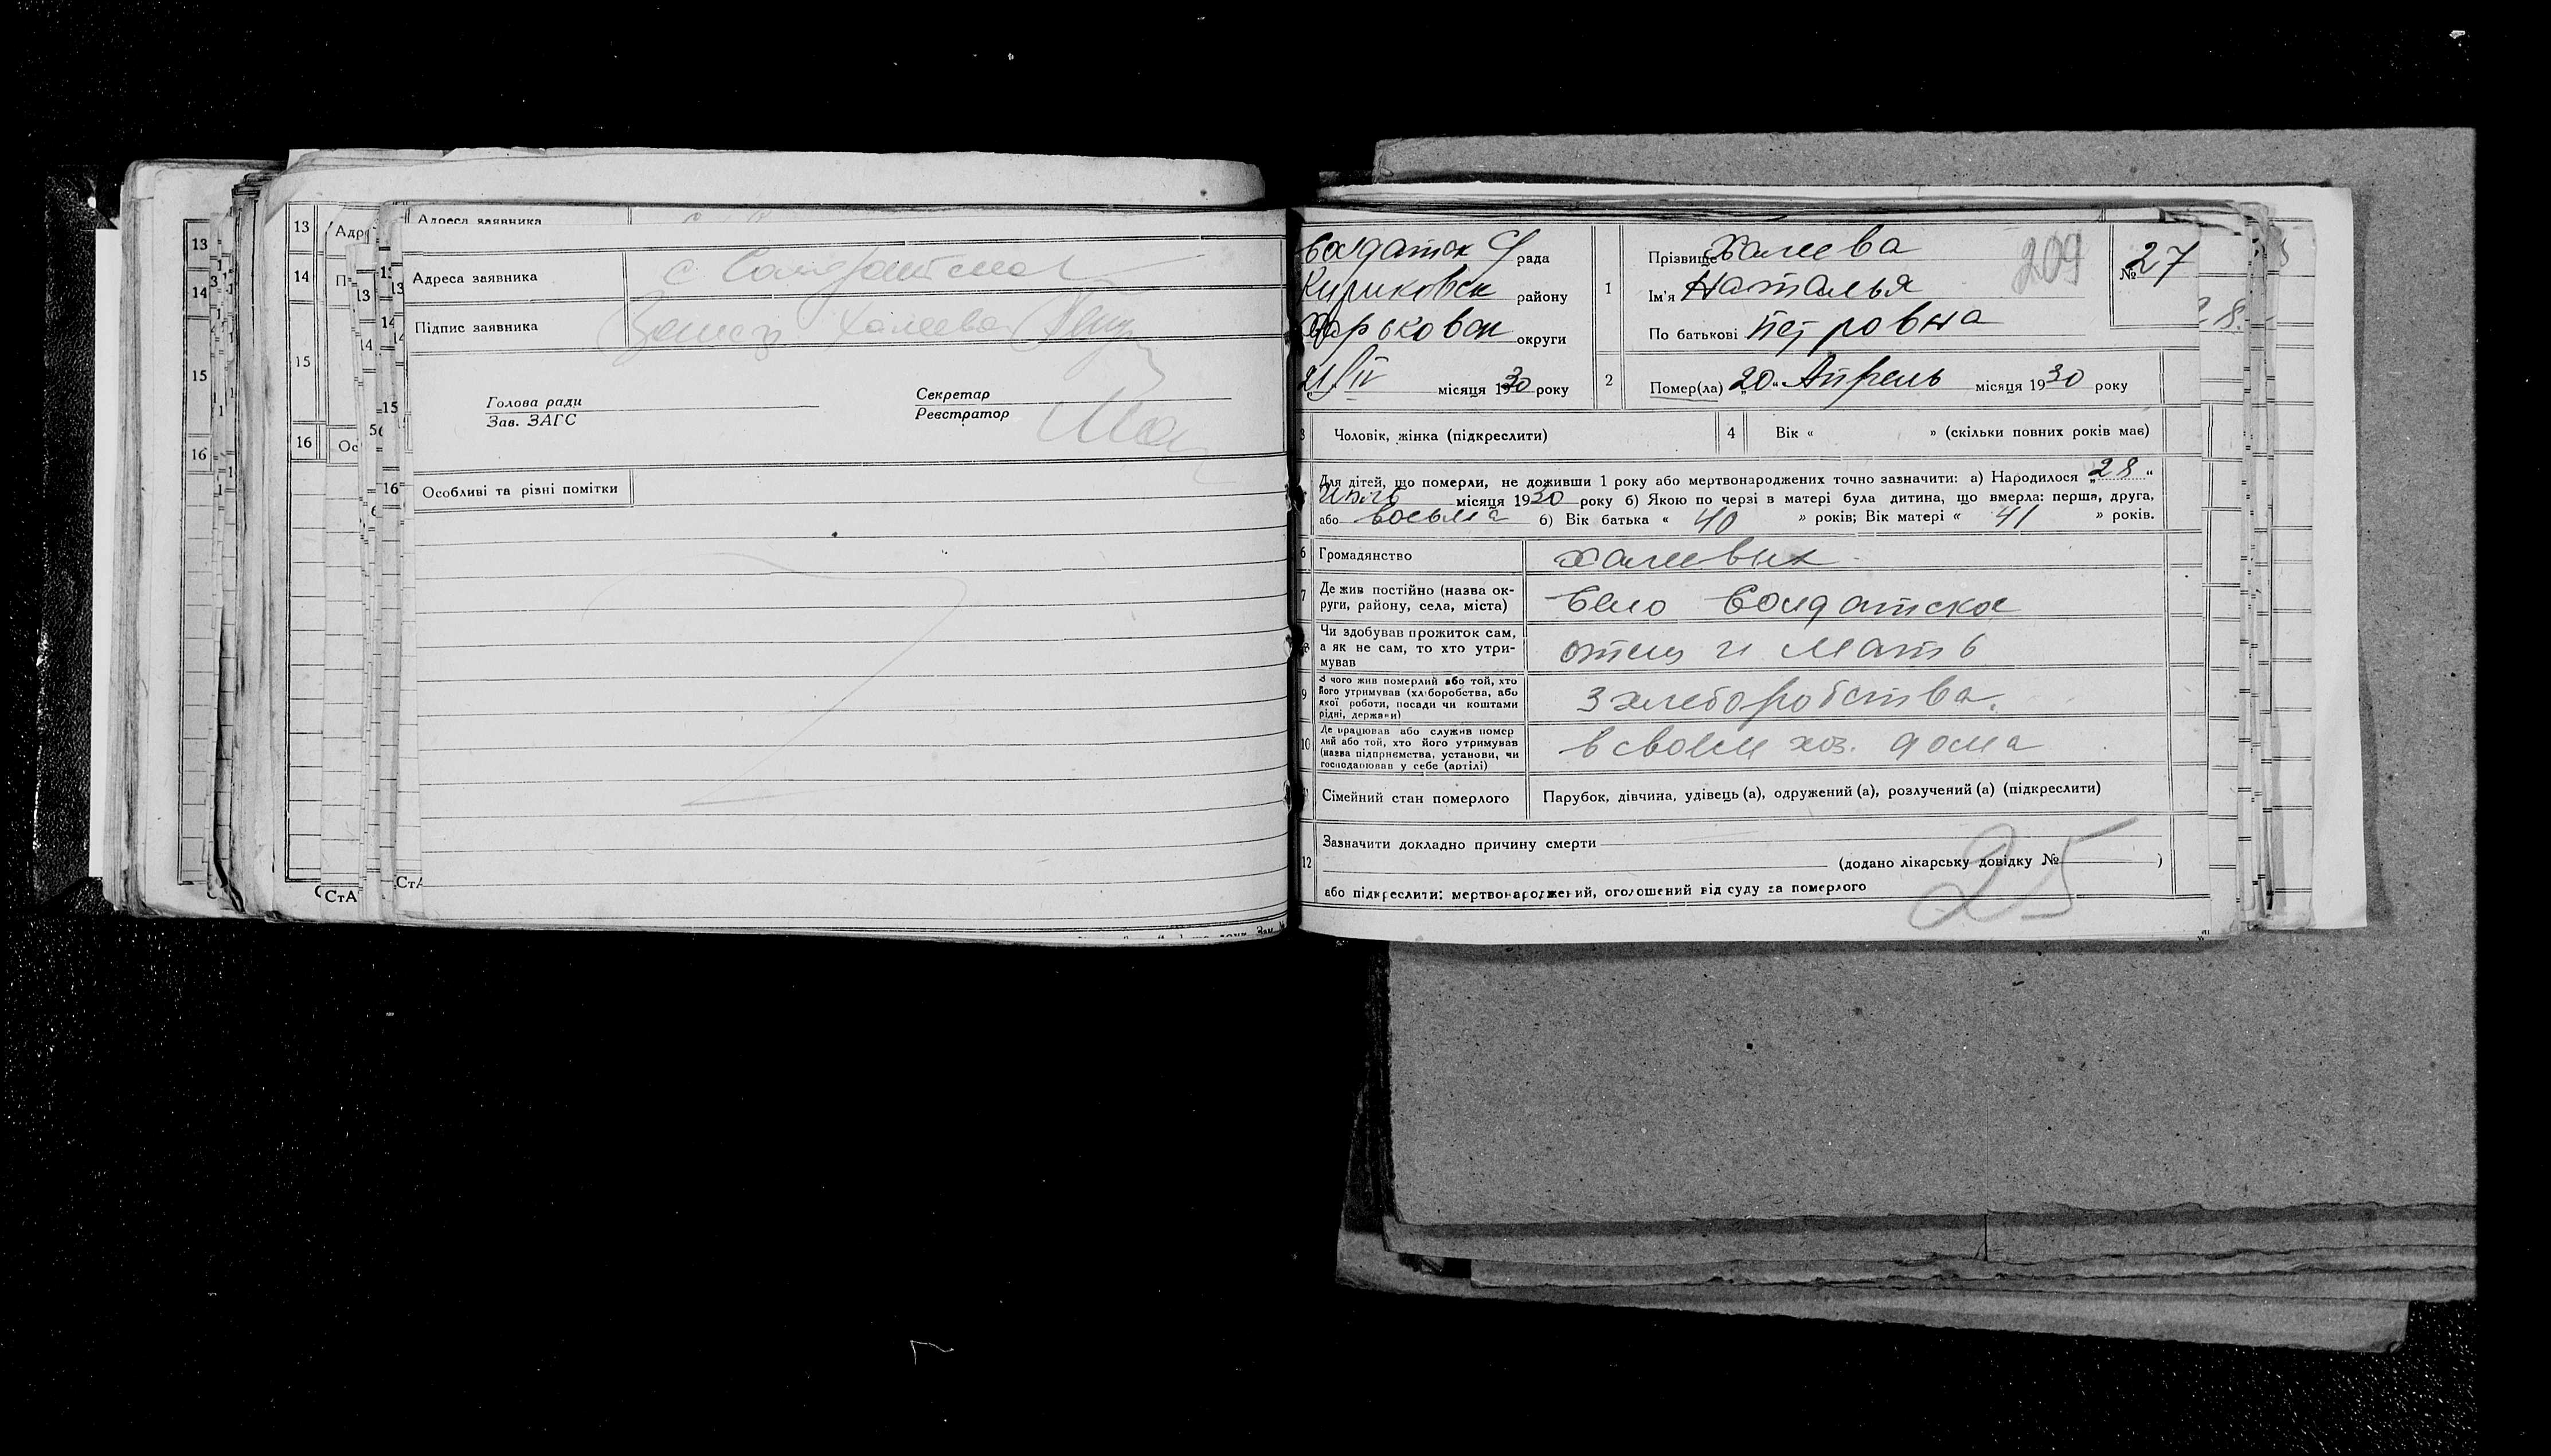 Адреса заявника
Адреса заявника с Солдатское
Підпис заявника Халеева
Голова ради
Зав. ЗАГС
Секретар
Реєстратор
Особливі та різні помітки
13
14
15
16
13
14
15
16
Солдатск С/рада
Кириковск району
Харьковск округи
21/IV місяця 1930 року
1
Прізвище Халеева
Ім'я Наталья
По батькові Петровна
209
№ 27
2
Помер(ла) „20“ Апрель місяця 1930 року
3 Чоловік, жінка (підкреслити)
4 Вік « » (скільки повних років має)
Для дітей, що померли, не доживши 1 року або мертвонароджених точно зазначити: а) Народилося „28“
місяця 1930 року б) Якою по черзі в матері була дитина, що вмерла: перша, друга,
або восьма б) Вік батька « 40 » років; Вік матері « 41 » років.
6 Громадянство
7 Де жив постійно (назва ок-
руги, району, села, міста) Село Солдатское
Чи здобував прожиток сам,
а як не сам, то хто утри-
мував отец и мать
9 З чого жив померлий або той, хто
його утримував (хліборобства, або
якої роботи, посади чи коштами
рідні, держави) з хлеборобства.
10 Де працював або служив помер
лий або той, хто його утримував
(назва підприємства, установи, чи
господарював у себе (артілі) в своем хоз. дома
Сімейний стан померлого Парубок, дівчина, удівець (а), одружений (а), розлучений (а) (підкреслити)
12 Зазначити докладно причину смерти
(додано лікарську довідку № )
або підкреслити: мертвонароджений, оголошений від суду за померлого
25